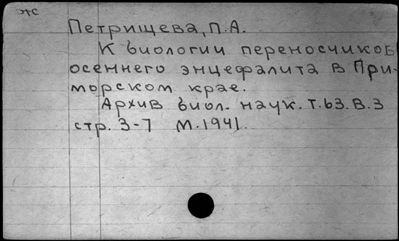 жс
Петрищева, П.А.
К биологии переносчиков
осеннего энцефалита в При-
морском крае.
Архив биол. наук. т.63. в.3
стр. 3-7 М.1941.